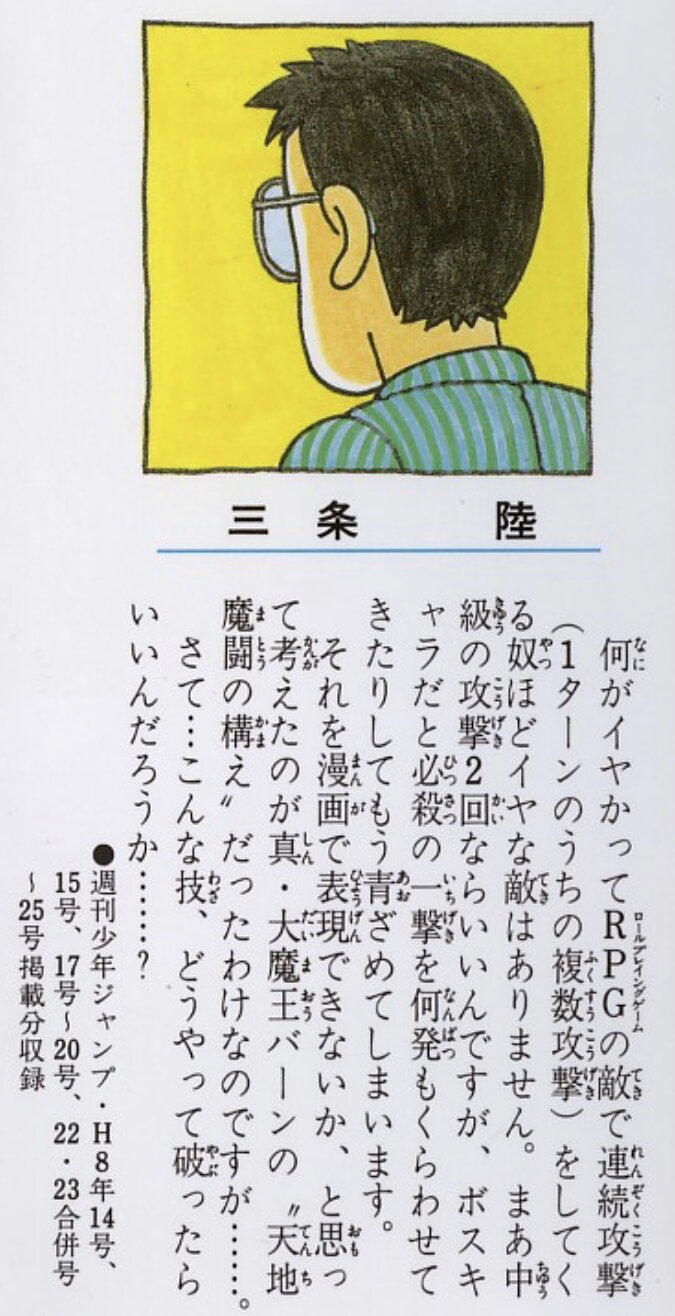 三条 陸
何がイヤかってRPGの敵で連続攻撃
(1ターンのうちの複数攻撃)をしてく
る奴ほどイヤな敵はありません。まあ中
級の攻撃2回ならいいんですが、ボスキ
ャラだと必殺の一撃を何発もくらわせて
きたりしてもう青ざめてしまいます。
それを漫画で表現できないか、と思っ
て考えたのが真・大魔王バーンの〝天地
魔闘の構え〟だったわけなのですが……。
さて…こんな技、どうやって破ったら
いいんだろうか……?
●週刊少年ジャンプ・H8年14号、
15号、17号~20号、22・23合併号
~25号掲載分収録